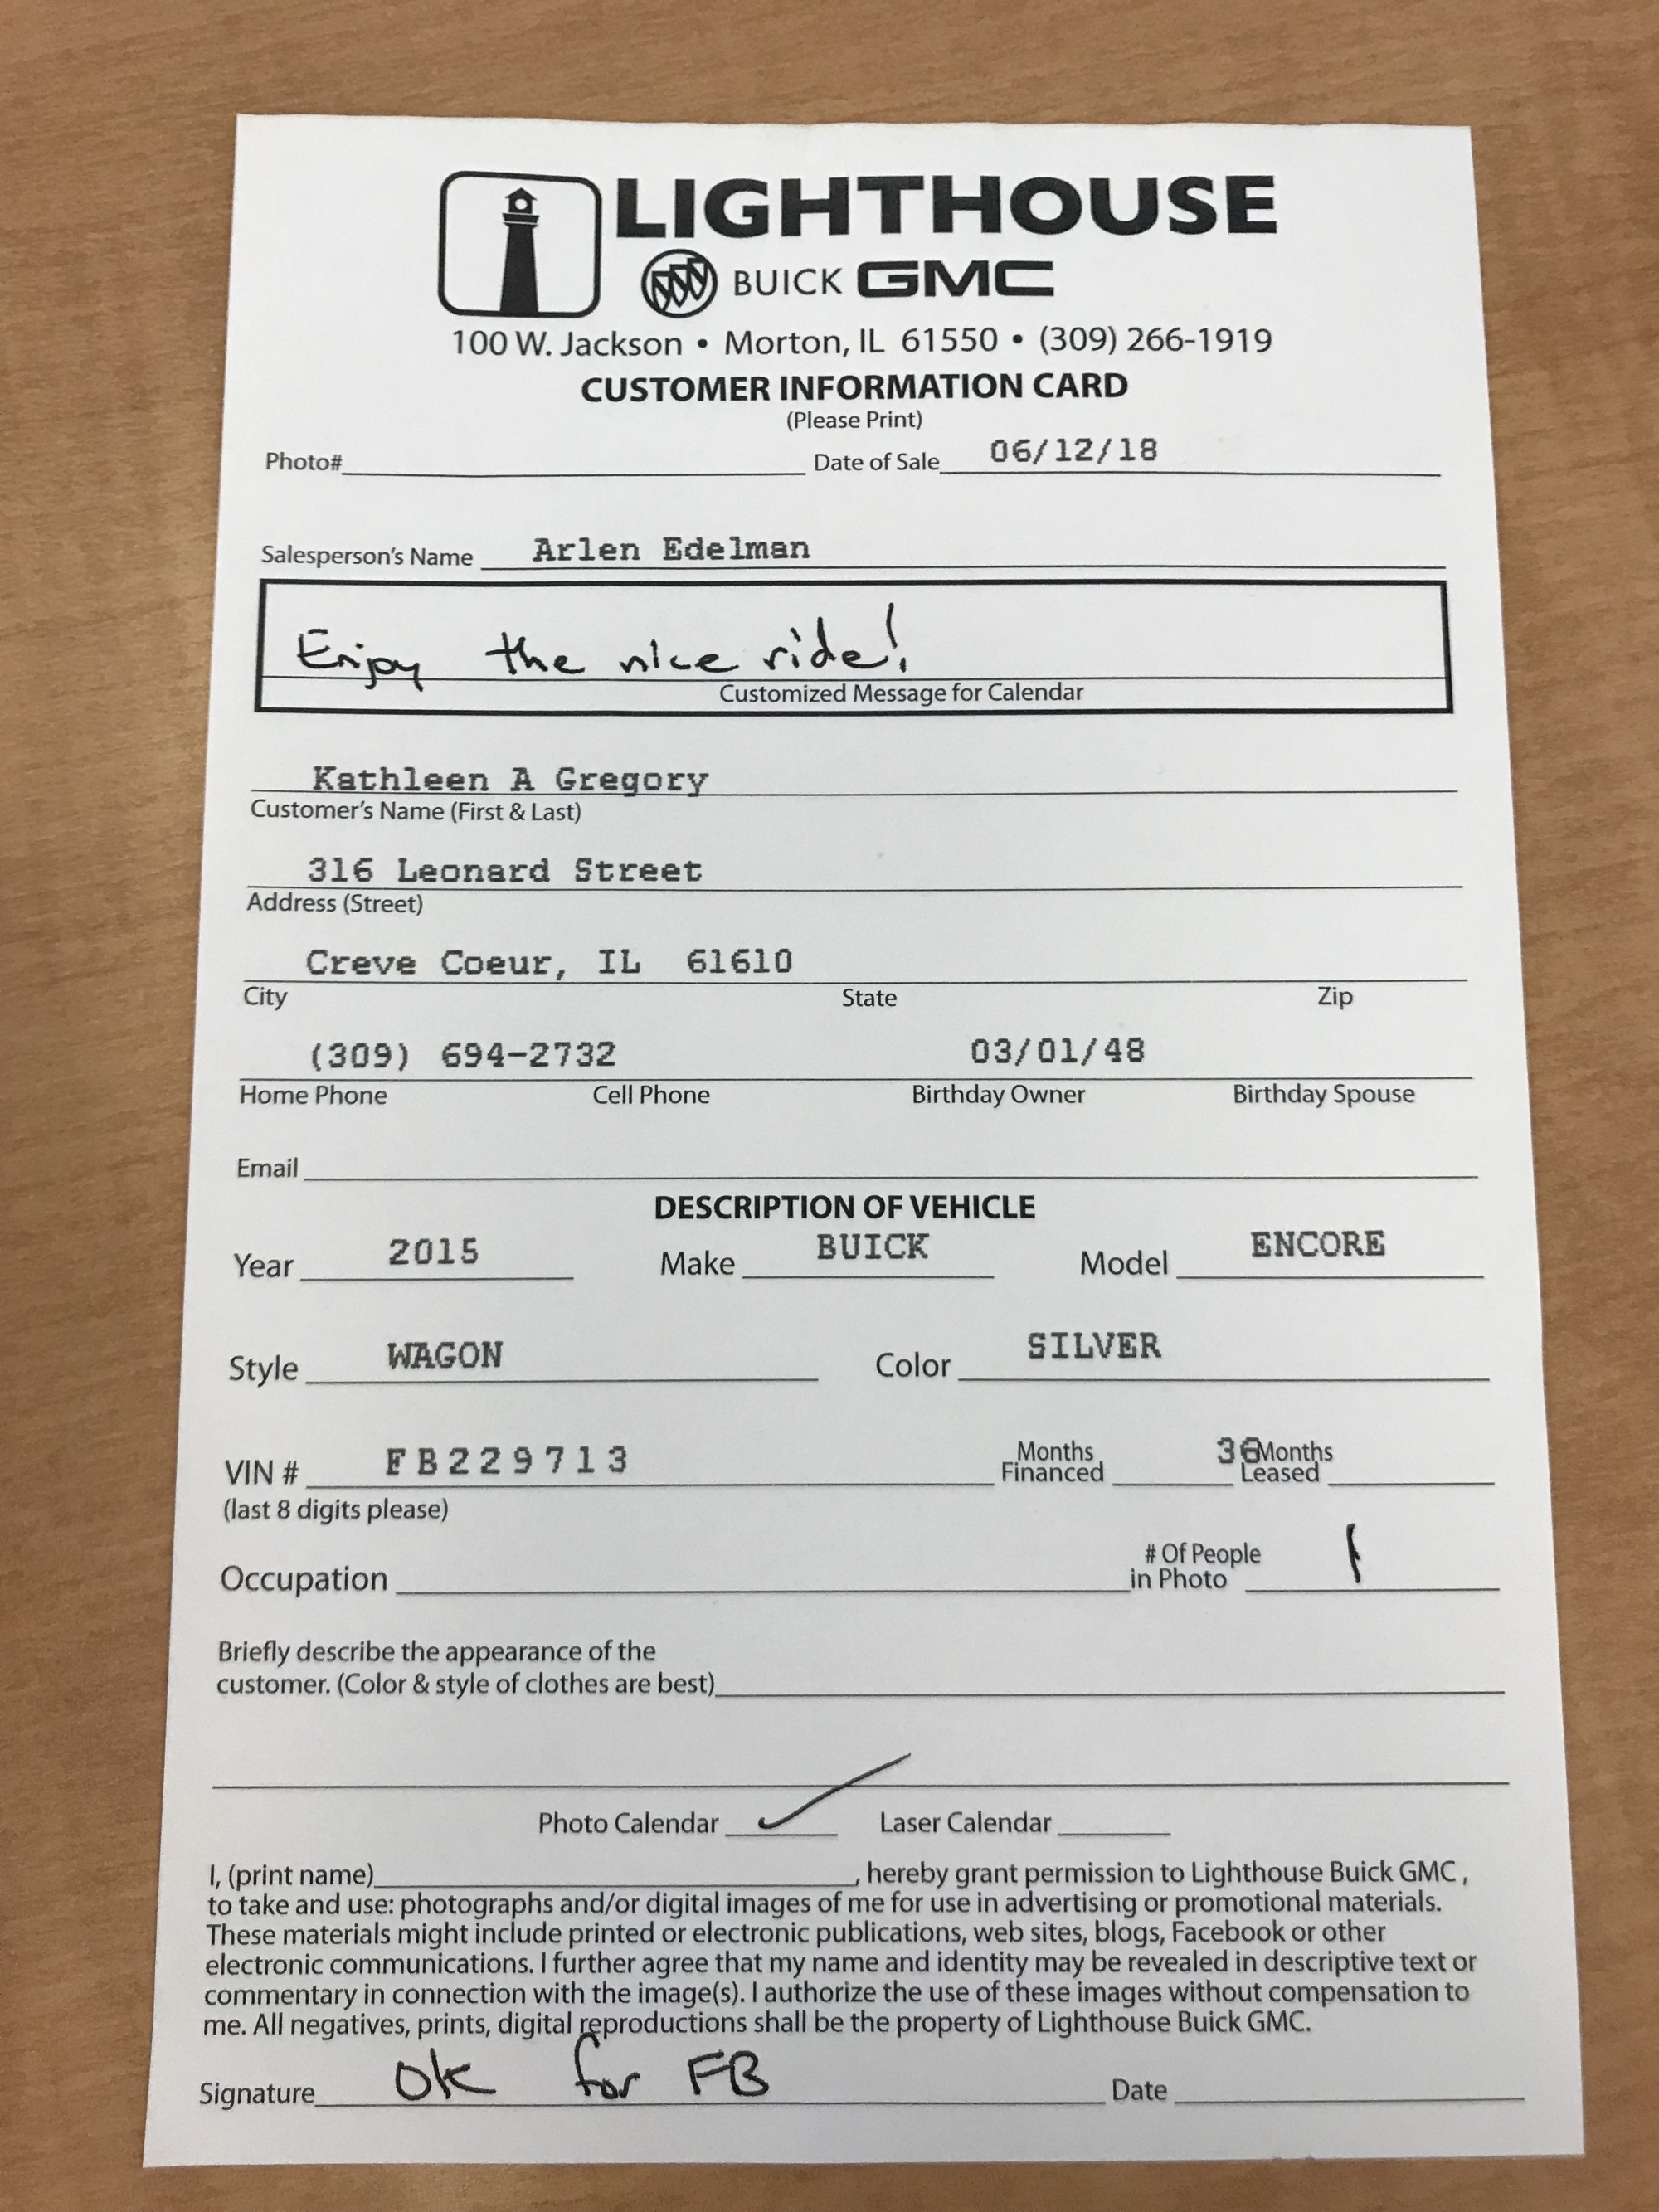 LIGHTHOUSE
BUICK GMC
100 W. Jackson • Morton, IL 61550 • (309) 266-1919
CUSTOMER INFORMATION CARD
(Please Print)
Photo# Date of Sale 06/12/18
Salesperson's Name Arlen Edelman
Enjoy the nice ride!
Customized Message for Calendar
Kathleen A Gregory
Customer's Name (First & Last)
316 Leonard Street
Address (Street)
Creve Coeur, IL 61610
City State Zip
(309) 694-2732 03/01/48
Home Phone Cell Phone Birthday Owner Birthday Spouse
Email
DESCRIPTION OF VEHICLE
Year 2015 Make BUICK Model ENCORE
Style WAGON Color SILVER
VIN # FB229713 Months Financed 36 Months Leased
(last 8 digits please)
Occupation # Of People in Photo 1
Briefly describe the appearance of the
customer. (Color & style of clothes are best)
Photo Calendar ✓ Laser Calendar
I, (print name) , hereby grant permission to Lighthouse Buick GMC ,
to take and use: photographs and/or digital images of me for use in advertising or promotional materials.
These materials might include printed or electronic publications, web sites, blogs, Facebook or other
electronic communications. I further agree that my name and identity may be revealed in descriptive text or
commentary in connection with the image(s). I authorize the use of these images without compensation to
me. All negatives, prints, digital reproductions shall be the property of Lighthouse Buick GMC.
Signature OK for FB Date